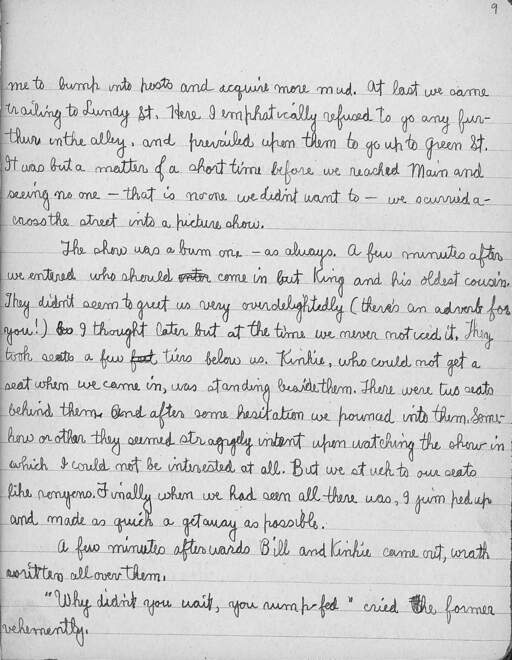 9
me to bump into posts and acquire more mud. At last we came
trailing to Lundy St. Here I emphatically refused to go any fur-
ther in the alley, and prevailed upon them to go up to Green St.
It was but a matter of a short time before we reached Main and
seeing no one — that is no one we didn't want to — we scurried a-
cross the street into a picture show.
The show was a bum one — as always. A few minutes after
we entered who should enter come in but King and his oldest cousin.
They didn't seem to greet us very overdelightedly (there's an adverb for
you!) so I thought later but at the time we never noticed it. They
took seats a few feet tiers below us. Kinkie, who could not get a
seat when we came in, was standing beside them. There were two seats
behind them and after some hesitation we pounced into them. Some-
how or other they seemed strangely intent upon watching the show in
which I could not be interested at all. But we stuck to our seats
like Finally when we had seen all there was, I jumped up
and made as quick a getaway as possible.
A few minutes afterwards Bill and Kinkie came out, wrath
written all over them.
"Why didn't you wait, you rump-fed" cried the former
vehemently.